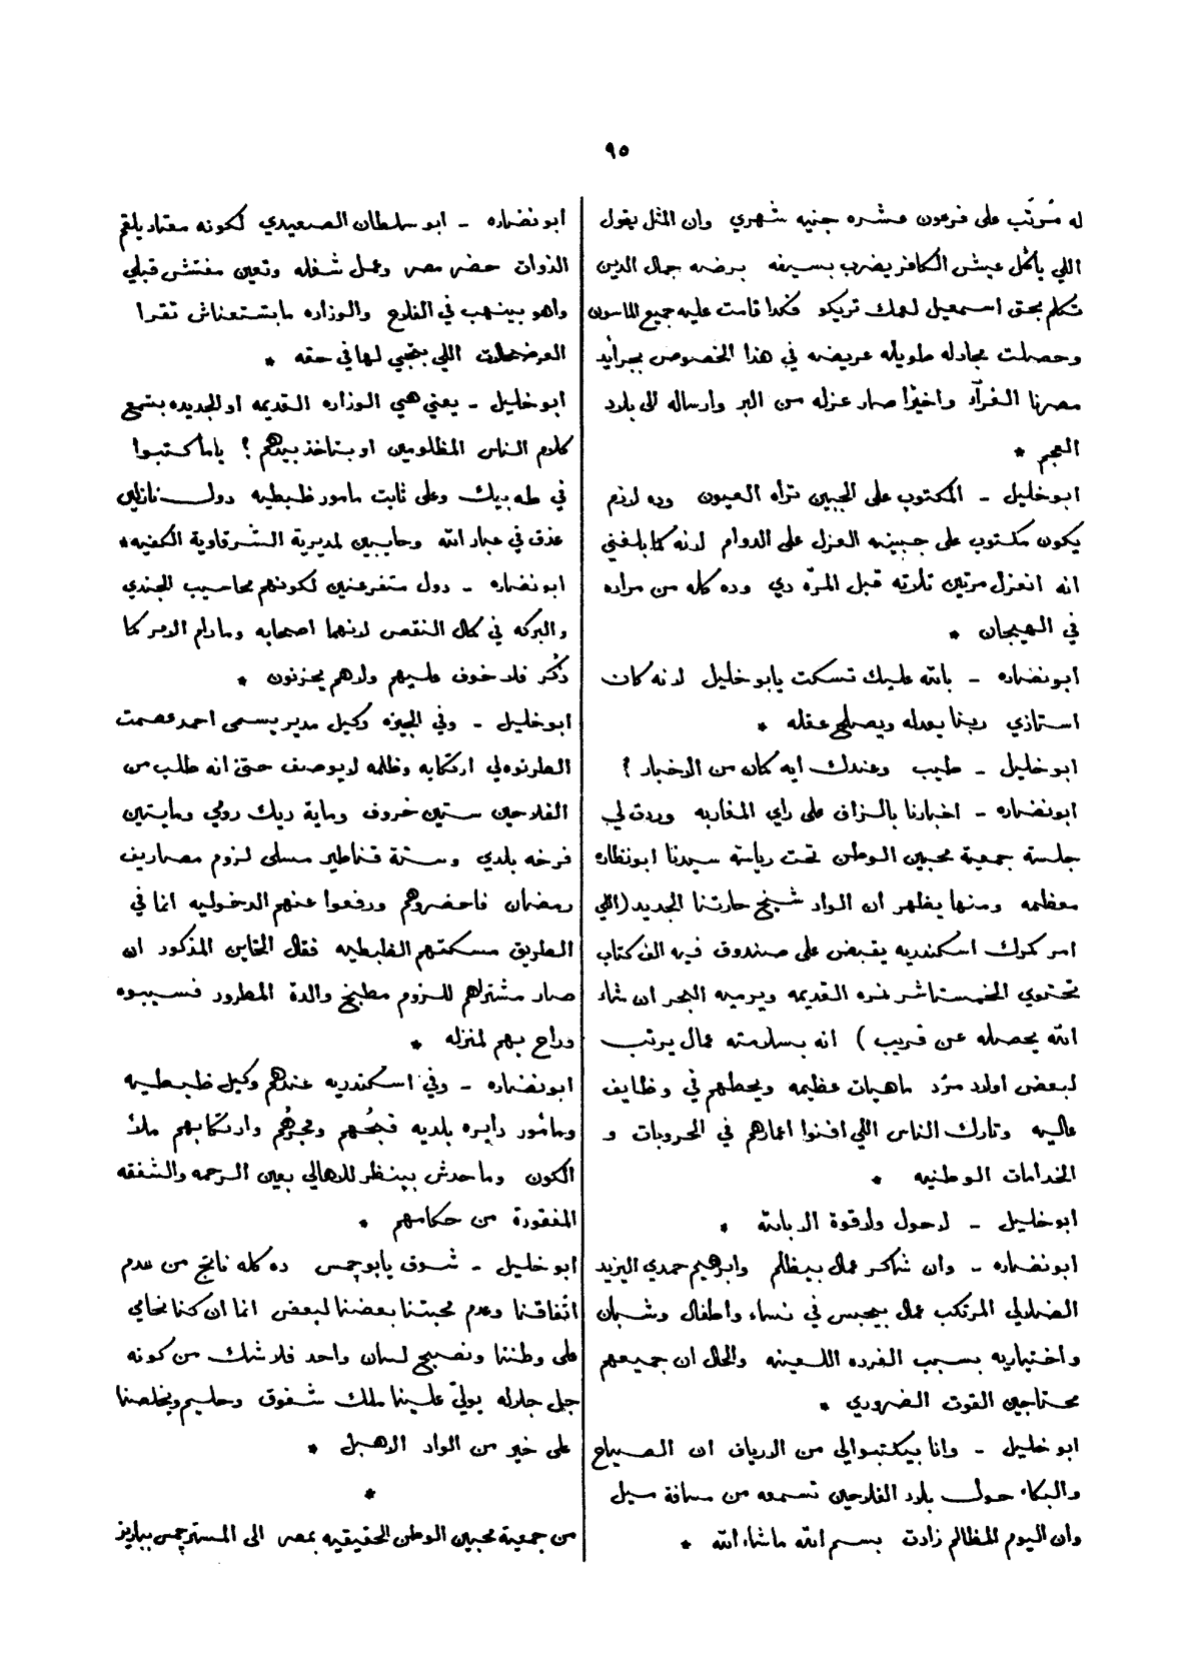 ٩٥
له مُرتّب على فرعون عشره جنيه شهري وان المثل يقول
اللي ياكل عيش الكافر يضرب بسيفه برضه جمال الدين
تكلم بحق اسمعيل لعمك تريكو فكدا قامت عليه جميع الماسون
وحصلت مجادله طويله عريضه في هذا الخصوص بجرائد
مصرنا الغرآء واخيرًا صار عزله من البر وارساله الى بلاد
العجم *
ابوخليل ـ المكتوب على الجبين تراه العيون وده لازم
يكون مكتوب على جبينه العزل على الدوام لانه كما بلغني
انه انعزل مرتين تلاته قبل المرّه دي وده كله من مراده
في الهيجان *
ابونضاره ـ بالله عليك تسكت يابوخليل لانه كان
استازي ربنا يعدله ويصلح عقله *
ابوخليل ـ طيب وعندك ايه كان من الاخبار ؟
ابونضاره ـ اخبارنا بالزاف على راي المغاربه وردت لي
جلسة جمعية محبين الوطن تحت رياسة سيدنا ابونظاره
معظمه ومنها يظهر ان الواد شيخ حارتنا الجديد (اللي
امر كمرك اسكندريه يقبض على صندوق فيه الف كتاب
تحتوي الخمستاشر نمره القديمه ويرميه البحر ان شاء
الله يحصله عن قريب ) انه بسلامته عمال يرتب
لبعض اولاد مرُد ماهيات عظيمه ويحطهم في وظايف
عاليه وتارك الناس اللي افنوا اعمارهم في الحروبات و
الخدامات الوطنيه *
ابوخليل ـ لاحول ولاقوة الا بالله *
ابونضاره ـ وان شاكر عمال بيظالم وابرهيم حمدي اليزيد
الضلالي المرتكب عمال بيحبس في نساء واطفال وشبان
واختياريه بسبب الفرده اللعينه والحال ان جميعهم
محتاجين القوت الضروري *
ابوخليل ـ وانا بيكتبوالي من الارياف ان الصياح
والبكاء حول بلاد الفلاحين تسمعه من مسافة ميل
وان اليوم المظالم زادت بسم الله ماشاء الله *
ابونضاره ـ ابوسلطان الصعيدي لكونه معتاد يلقم
الذوات حضر مصر وعمل شغله وتعين مفتش قبلي
واهو بينهب في الفلاح والوزاره مابتستعناش تقرا
العرضحالات اللي بتجي لها في حقه *
ابوخليل ـ يعني هي الوزاره القديمه او الجديده بتسمع
كلام الناس المظلومين او بتاخذ بيدهم ؟ ياما كتبوا
في طه بيك وعلى ثابت مامور ظبطيه دول نازلين
عزق في عباد الله وحايبين لمديرية الشرقاوية الكفيه *
ابونضاره ـ دول متفرعنين لكونهم محاسيب الجندي
والبركه في كمال النقص لانهما اصحابه ومادام الامر كما
ذُكر فلا خوف عليهم ولاهم يحزنون *
ابوخليل ـ وفي الجيزه وكيل مدير يسمى احمد عصمت
الطرنوه لي ارتكابه وظلمه لايوصف حتى انه طلب من
الفلاحين ستين خروف وماية ديك رومي ومايتين
فرخه بلدي وستة قناطير مسلى لزوم مصاريف
رمضان فاحضروهم ورفعوا عنهم الدخوليه انما في
الطريق مسكتهم الظبطيه فقال الخاين المذكور ان
صار مشتراهم للزوم مطبخ والدة المطرود فسيبوه
وراح بهم لمنزله *
ابونضاره ـ وفي اسكندريه عندهم وكيل ظبطيه
ومأمور دايره بلديه قبحُهم وفجرُهم وارتكابهم ملأ
الكون وماحدش بينظر للاهالي بعين الرحمه والشفقه
المفقودة من حكامهم *
ابوخليل ـ شوف يابوجمس ده كله ناتج من عدم
اتفاقنا وعدم محبتنا بعضنا لبعض انما ان كنا نحامي
على وطننا ونصبح لسان واحد فلا شك من كونه
جل جلاله يوليّ علينا ملك شفوق وحليم ويخلصنا
على خير من الواد الاهبل *
*
من جمعية محبين الوطن الحقيقيه بمصر الى المستر جمس بباريز